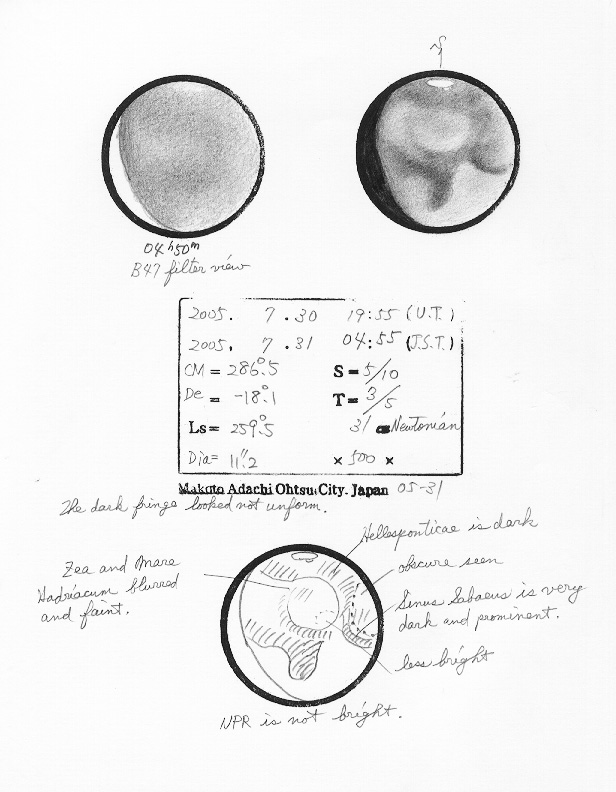 04ʰ50ᵐ
B47 filter view
2005. 7.30 19:55 (U.T.)
2005. 7.31 04:55 (J.S.T.)
CM = 286°.5 S = 5/10
De = -18°.1 T = 3/5
Ls = 259°.5 31 Newtonian
Dia = 11".2 × 500 ×
Makoto Adachi Ohtsu City. Japan 05-31
The dark fringe looked not unform.
Hellesponticae is dark
Zea and Mare
Hadriacum blurred
and faint.
obscure seen
Sinus Sabaeus is very
dark and prominent.
less bright
NPR is not bright.